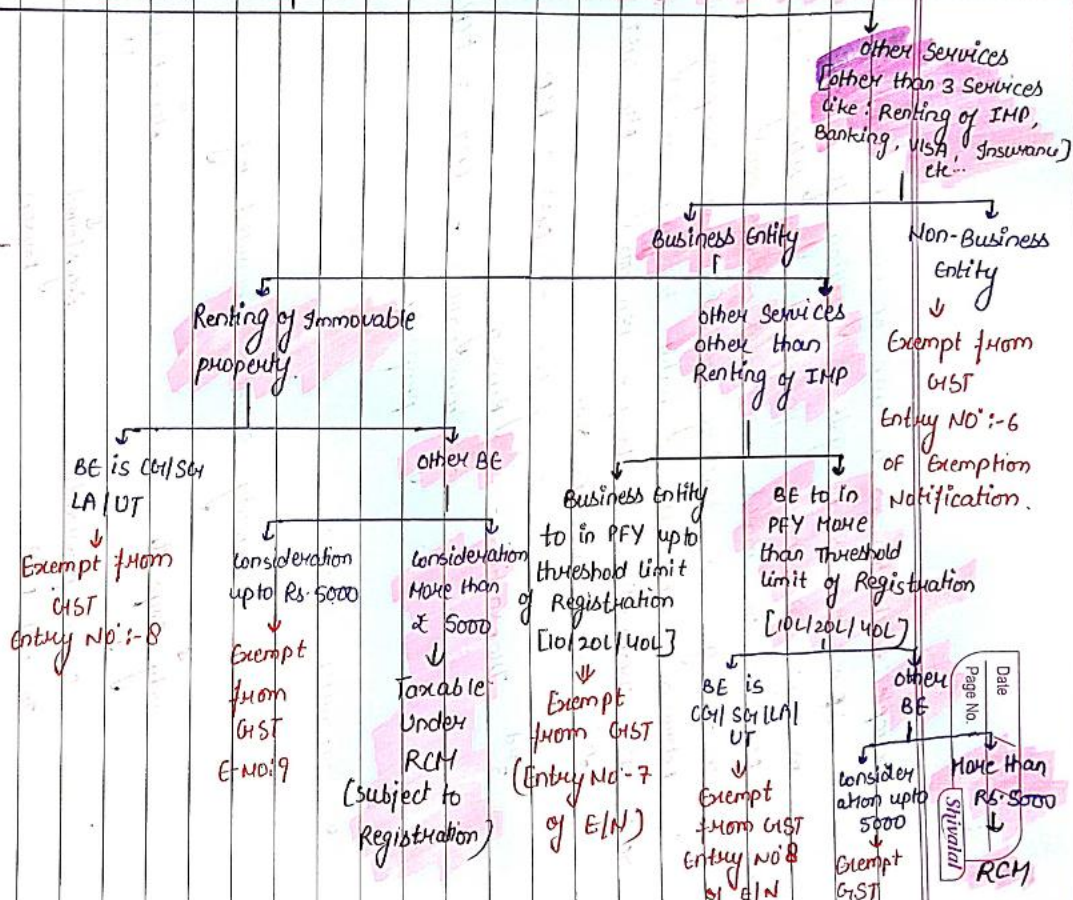 Other Services
[other than 3 Services
like : Renting of IMP,
Banking, VISA, Insurance]
etc...
Business Entity
Non-Business
Entity
Exempt from
GST
Entry NO :- 6
OF Exemption
Notification.
Renting of Immovable
property.
other Services
other than
Renting of IMP
BE is CG/SG/
LA/UT
Exempt from
GST
Entry No :- 8
other BE
Consideration
upto Rs. 5000
Exempt
from
GST
E-NO:9
Consideration
More than
₹ 5000
Taxable
Under
RCM
(subject to
Registration)
Business Entity
to in PFY upto
threshold limit
of Registration
[10/20L/40L]
Exempt
from GST
(Entry No - 7
of E/N)
BE to in
PFY More
than Threshold
limit of Registration
[10L/20L/40L]
BE is
CG/SG/LA/
UT
Exempt
from GST
Entry No 8
of E/N
other
BE
Consider
ation upto
5000
Exempt
GST
More than
Rs. 5000
RCM
Date
Page No.
Shivalal